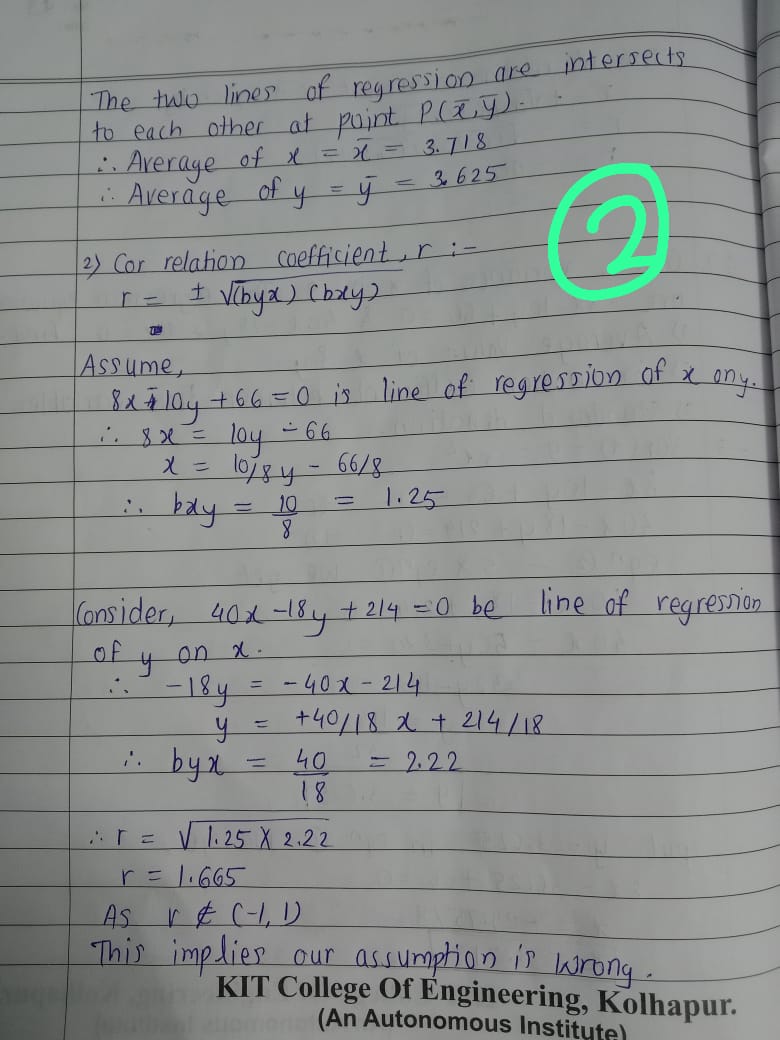 The two lines of regression are intersects
to each other at point P(x̄,ȳ).
∴ Average of x = x̄ = 3.718
∴ Average of y = ȳ = 3.625
2
2) Cor relation coefficient, r :-
r = ± √(byx) (bxy)
Assume,
8x - 10y + 66 = 0 is line of regression of x ony.
∴ 8x = 10y - 66
x = 10/8 y - 66/8
∴ bxy = 10/8 = 1.25
Consider, 40x -18y + 214 = 0 be line of regression
of y on x.
∴ -18y = -40x - 214
y = +40/18 x + 214/18
∴ byx = 40/18 = 2.22
∴ r = √1.25 X 2.22
r = 1.665
As r ∉ (-1, 1)
This implies our assumption is wrong.
KIT College Of Engineering, Kolhapur.
(An Autonomous Institute)